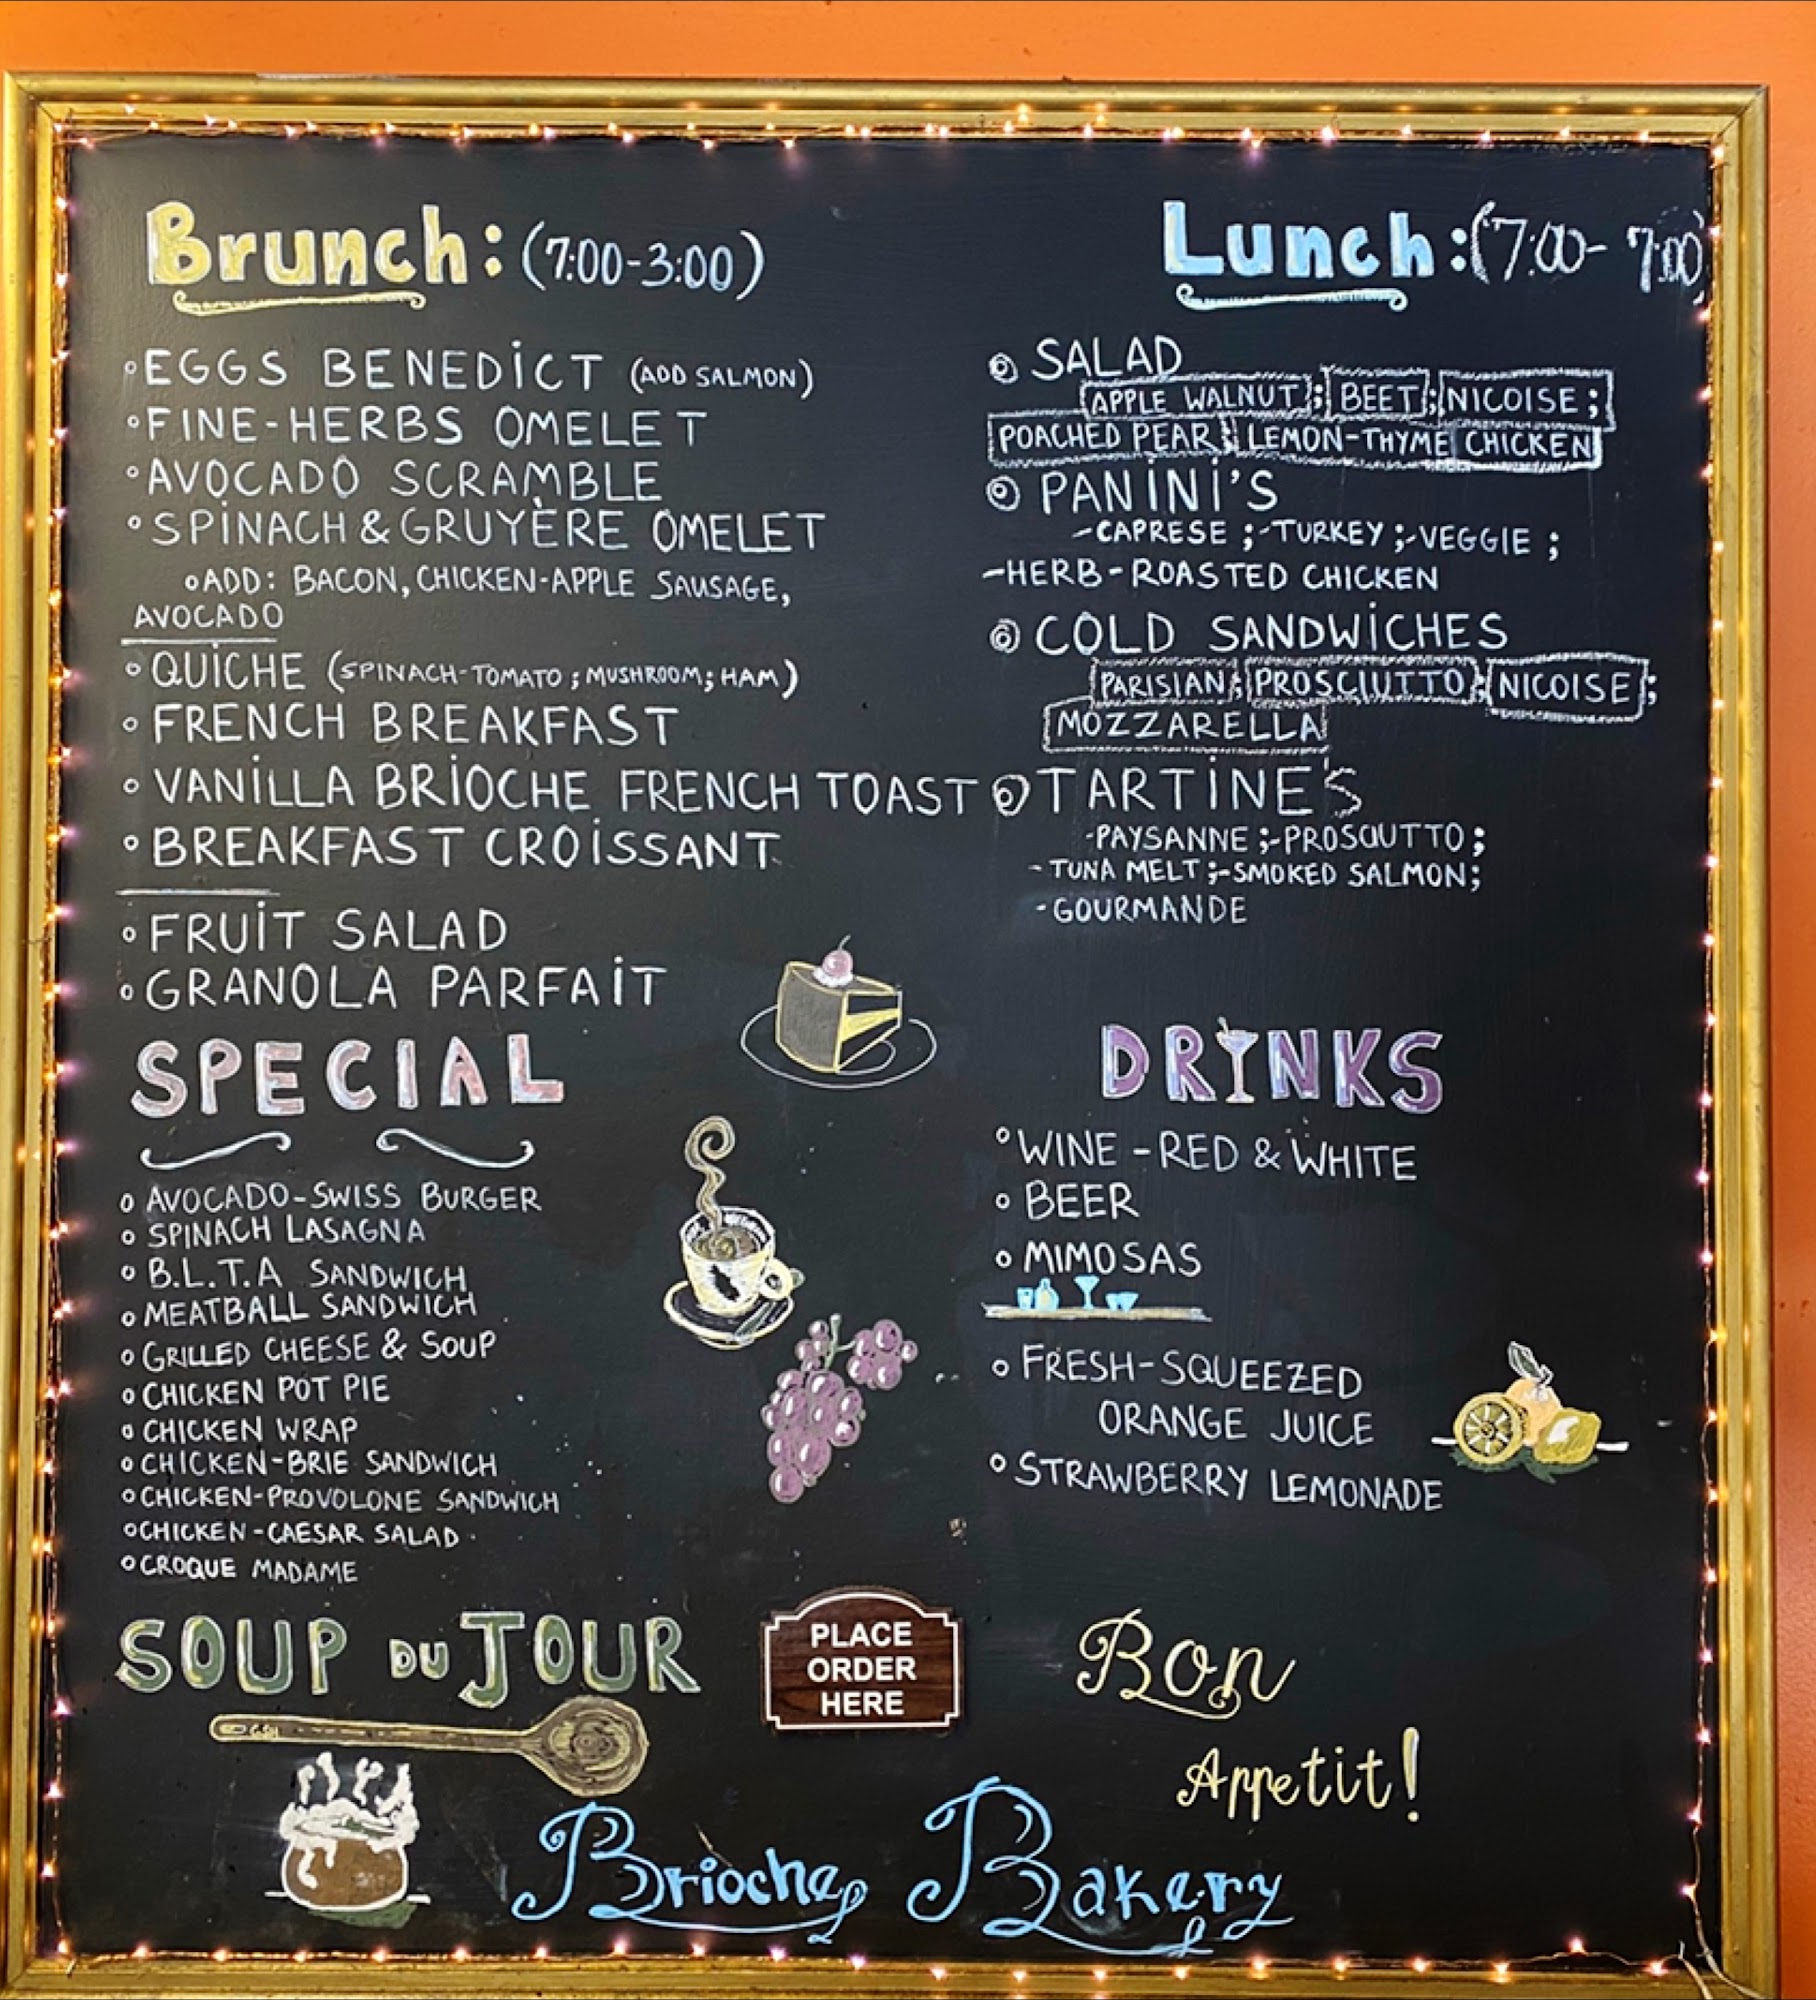 Brunch: (7:00-3:00)
°EGGS BENEDICT (ADD SALMON)
°FINE-HERBS OMELET
°AVOCADO SCRAMBLE
°SPINACH & GRUYÈRE OMELET
°ADD: BACON, CHICKEN-APPLE SAUSAGE,
AVOCADO
°QUICHE (SPINACH-TOMATO; MUSHROOM; HAM)
°FRENCH BREAKFAST
°VANILLA BRIOCHE FRENCH TOAST
°BREAKFAST CROISSANT
°FRUIT SALAD
°GRANOLA PARFAIT
SPECIAL
°AVOCADO-SWISS BURGER
°SPINACH LASAGNA
°B.L.T.A SANDWICH
°MEATBALL SANDWICH
°GRILLED CHEESE & SOUP
°CHICKEN POT PIE
°CHICKEN WRAP
°CHICKEN-BRIE SANDWICH
°CHICKEN-PROVOLONE SANDWICH
°CHICKEN-CAESAR SALAD
°CROQUE MADAME
SOUP DU JOUR
Lunch: (7:00- 7:00)
SALAD
APPLE WALNUT; BEET; NICOISE;
POACHED PEAR; LEMON-THYME CHICKEN
PANINI'S
-CAPRESE ;-TURKEY ;-VEGGIE ;
-HERB-ROASTED CHICKEN
COLD SANDWICHES
PARISIAN; PROSCIUTTO; NICOISE;
MOZZARELLA
TARTINE'S
-PAYSANNE ;-PROSCIUTTO;
-TUNA MELT ;-SMOKED SALMON;
-GOURMANDE
DRINKS
°WINE - RED & WHITE
°BEER
°MIMOSAS
°FRESH-SQUEEZED
ORANGE JUICE
°STRAWBERRY LEMONADE
PLACE
ORDER
HERE
Bon
Appetit!
Brioche Bakery